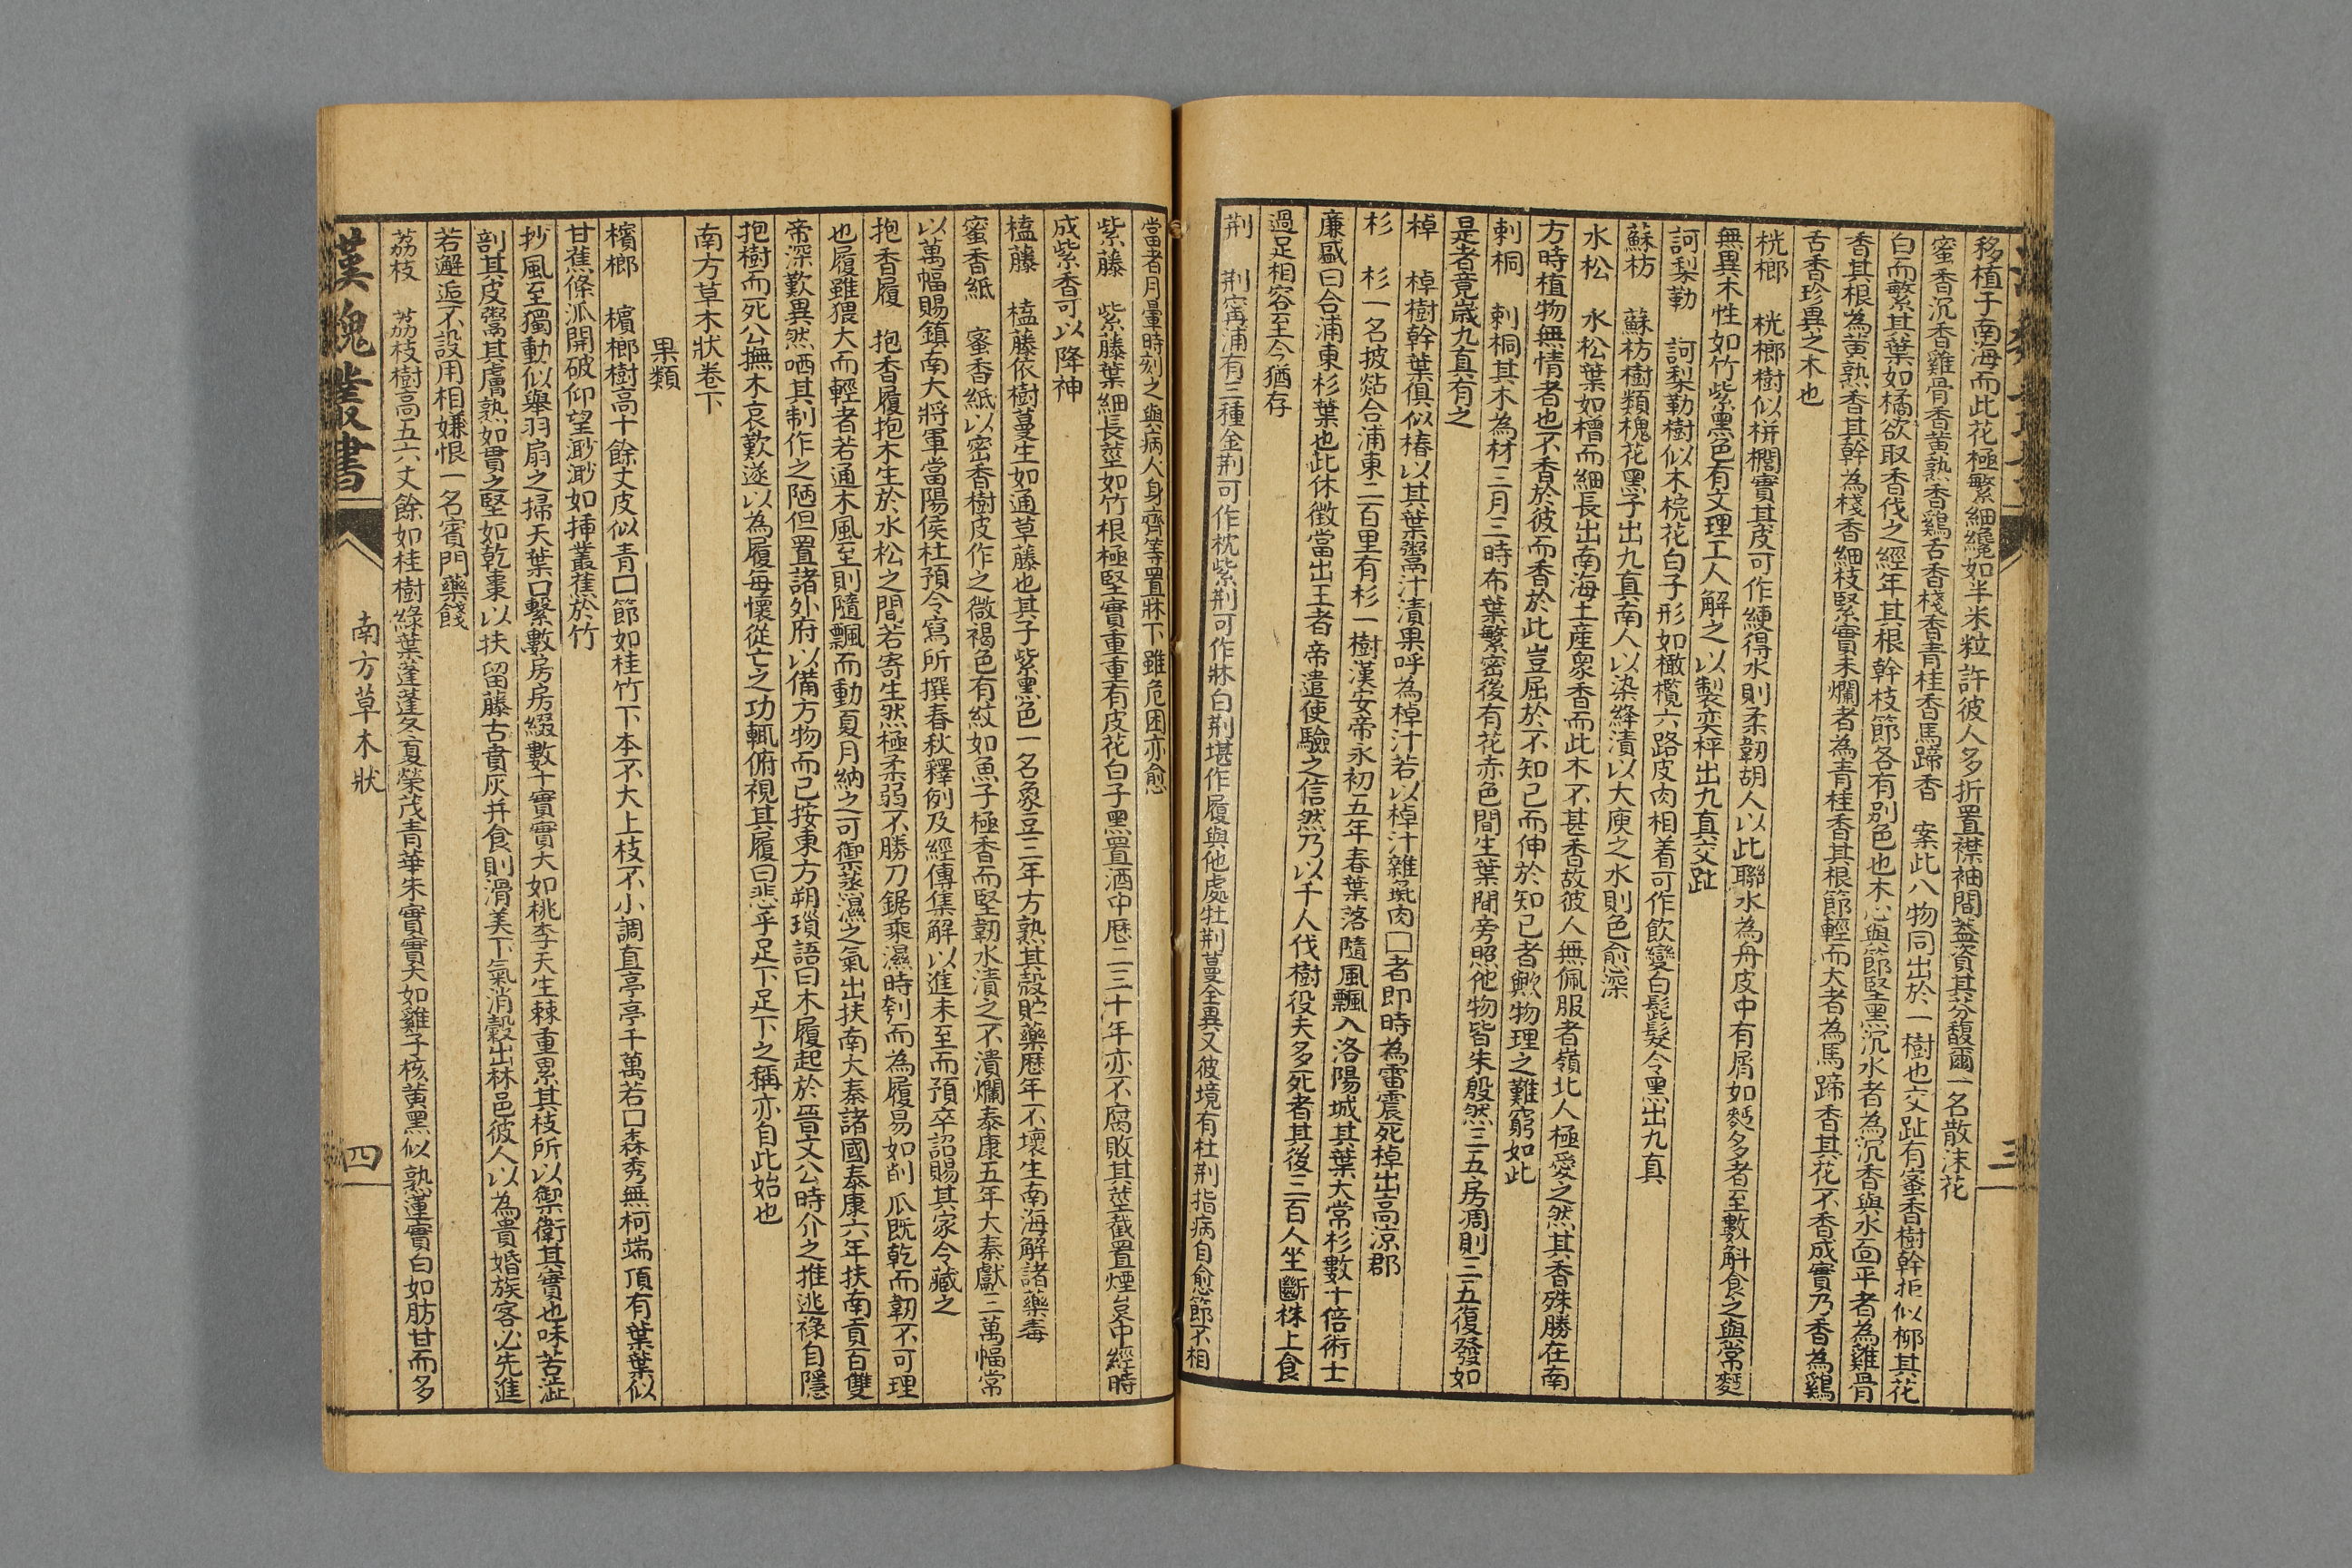 移植于南海而此花極繁細纔如半米粒許彼人多折置襟袖間蓋資其芬馥爾一名散沫花
蜜香沉香雞骨香黃熟香鷄舌香棧香青桂香馬蹄香　案此八物同出於一樹也交趾有蜜香樹幹拒似柳其花
白而繁其葉如橘欲取香伐之經年其根幹枝節各有别色也木心與節堅黑沉水者為沉香與水面平者為雞骨
香其根為黃熟香其幹為棧香細枝緊實未爛者為青桂香其根節輕而大者為馬蹄香其花不香成實乃香為鷄
舌香珍異之木也
桄榔　桄榔樹似栟櫚實其皮可作綆得水則柔韌胡人以此聯木為舟皮中有屑如麪多者至數斛食之與常麪
無異木性如竹紫黑色有文理工人解之以製奕枰出九真交趾
訶梨勒　訶梨勒樹似木梡花白子形如橄欖六路皮肉相着可作飲變白髭髮令黑出九真
蘇枋　蘇枋樹類槐花黑子出九真南人以染絳漬以大庾之水則色愈深
水松　水松葉如檜而細長出南海土産衆香而此木不甚香故彼人無佩服者嶺北人極愛之然其香殊勝在南
方時植物無情者也不香於彼而香於此豈屈於不知己而伸於知己者歟物理之難窮如此
刺桐　刺桐其木為材三月三時布葉繁密後有花赤色間生葉間旁照他物皆朱殷然三五房凋則三五復發如
是者竟歲九真有之
棹　棹樹幹葉俱似椿以其葉鬻汁漬果呼為棹汁若以棹汁雜彘肉口者即時為雷震死棹出高凉郡
杉　杉一名披煔合浦東二百里有杉一樹漢安帝永初五年春葉落隨風飄入洛陽城其葉大常杉數十倍術士
廉盛曰合浦東杉葉也此休徵當出王者帝遣使驗之信然乃以千人伐樹役夫多死者其後三百人坐斷株上食
過足相容至今猶存
荆　荆寗浦有三種金荆可作枕紫荆可作牀白荆堪作履與他處牡荆蔓全異又彼境有杜荆指病自愈節不相
當者月暈時刻之與病人身齊等置牀下雖危困亦愈
紫藤　紫藤葉細長莖如竹根極堅實重重有皮花白子黑置酒中歷二三十年亦不腐敗其莖截置煙炱中經時
成紫香可以降神
榼藤　榼藤依樹蔓生如通草藤也其子紫黑色一名象豆三年方熟其殻貯藥歷年不壞生南海解諸藥毒
蜜香紙　蜜香紙以密香樹皮作之微褐色有紋如魚子極香而堅韌水漬之不潰爛泰康五年大秦獻三萬幅常
以萬幅賜鎮南大將軍當陽侯杜預令寫所撰春秋釋例及經傳集解以進未至而預卒詔賜其家令藏之
抱香履　抱香履抱木生於水松之間若寄生然極柔弱不勝刀鋸乘濕時刳而為履易如削瓜既乾而韌不可理
也履雖猥大而輕者若通木風至則隨飄而動夏月納之可禦蒸濕之氣出扶南大秦諸國泰康六年扶南貢百雙
帝深歎異然哂其制作之陋但置諸外府以備方物而已按東方朔瑣語曰木履起於晉文公時介之推逃祿自隱
抱樹而死公撫木哀歎遂以為履每懷從亡之功輒俯視其履曰悲乎足下足下之稱亦自此始也
南方草木狀卷下
果類
檳榔　檳榔樹高十餘丈皮似青口節如桂竹下本不大上枝不小調直亭亭千萬若口森秀無柯端頂有葉葉似
甘蕉條泒開破仰望渺渺如挿叢蕉於竹
抄風至獨動似舉羽扇之掃天葉口繫數房房綴數十實實大如桃李天生棘重累其枝所以禦衛其實也味苦澁
剖其皮鬻其膚熟如貫之堅如乾棗以扶留藤古賁灰并食則滑美下氣消穀出林邑彼人以為貴婚族客必先進
若邂逅不設用相嫌恨一名賓門藥餞
荔枝　荔枝樹高五六丈餘如桂樹綠葉蓬蓬冬夏榮茂青華朱實實大如雞子核黃黑似熟蓮實白如肪甘而多
漢魏叢書
南方草木狀
四
三